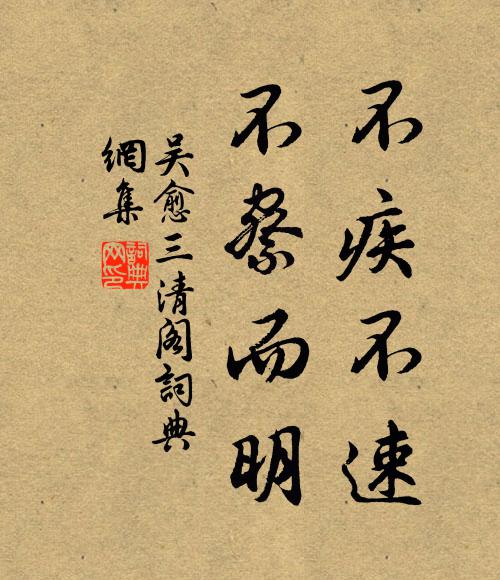 不疾不速
不察而明
吴愈三清阁詞典
網集
詞典
网印